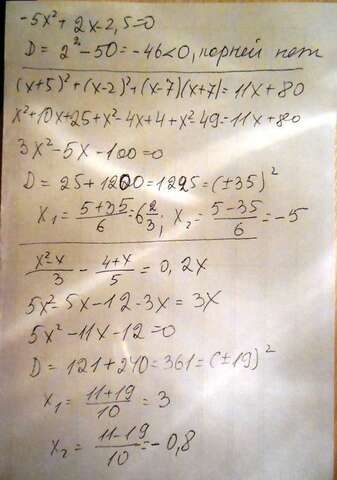 -5x²+2x-2,5=0
D=2²-50=-46<0, корней нет
(x+5)²+(x-2)²+(x-7)(x+7)=11x+80
x²+10x+25+x²-4x+4+x²-49=11x+80
3x²-5x-100=0
D=25+1200=1225=(±35)²
x₁=(5+35)/6=6 2/3; x₂=(5-35)/6=-5
(x²-x)/3 - (4+x)/5 = 0,2x
5x²-5x-12-3x=3x
5x²-11x-12=0
D=121+240=361=(±19)²
x₁=(11+19)/10=3
x₂=(11-19)/10=-0,8